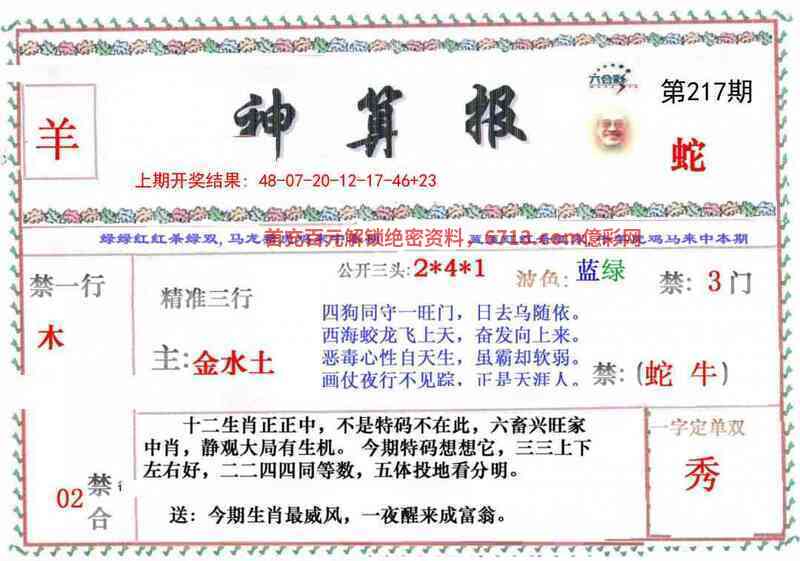 六合彩
第217期
羊
神算报
蛇
上期开奖结果：48-07-20-12-17-46+23
首充百元解锁绝密资料，6713.com億彩网
绿绿红红杀绿双,马龙
鸡马来中本期
公开三头:2*4*1
波色:蓝绿
禁:3门
禁一行
木
精准三行
主:金水土
四狗同守一旺门，日去乌随依。
西海蛟龙飞上天，奋发向上来。
恶毒心性自天生，虽霸却软弱。
画仗夜行不见踪，正是天涯人。
禁:(蛇 牛)
十二生肖正正中，不是特码不在此，六畜兴旺家
中肖，静观大局有生机。 今期特码想想它，三三上下
左右好，二二四四同等数，五体投地看分明。
送：今期生肖最威风，一夜醒来成富翁。
02
禁
合
一字定单双
秀